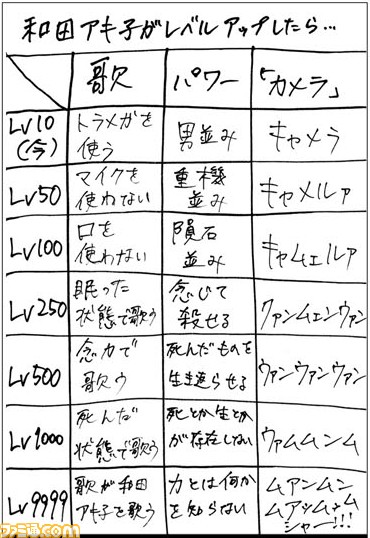 和田アキ子がレベルアップしたら…
歌
パワー
「カメラ」
Lv10
(今)
トラメガを
使う
男並み
キャメラ
Lv50
マイクを
使わない
重機
並み
キャメルァ
Lv100
口を
使わない
隕石
並み
キャムェルァ
Lv250
眠った
状態で歌う
念じて
殺せる
クァンムェンヴァン
Lv500
念力で
歌う
死んだものを
生き返らせる
ヴァンヴァンヴァン
Lv1000
死んだ
状態で歌う
死とか生とか
が存在しない
ヴァムムンム
Lv9999
歌が和田
アキ子を歌う
力とは何か
を知らない
ムアンムン
ムアッム・ム
シャー!!!
ファミ通.com